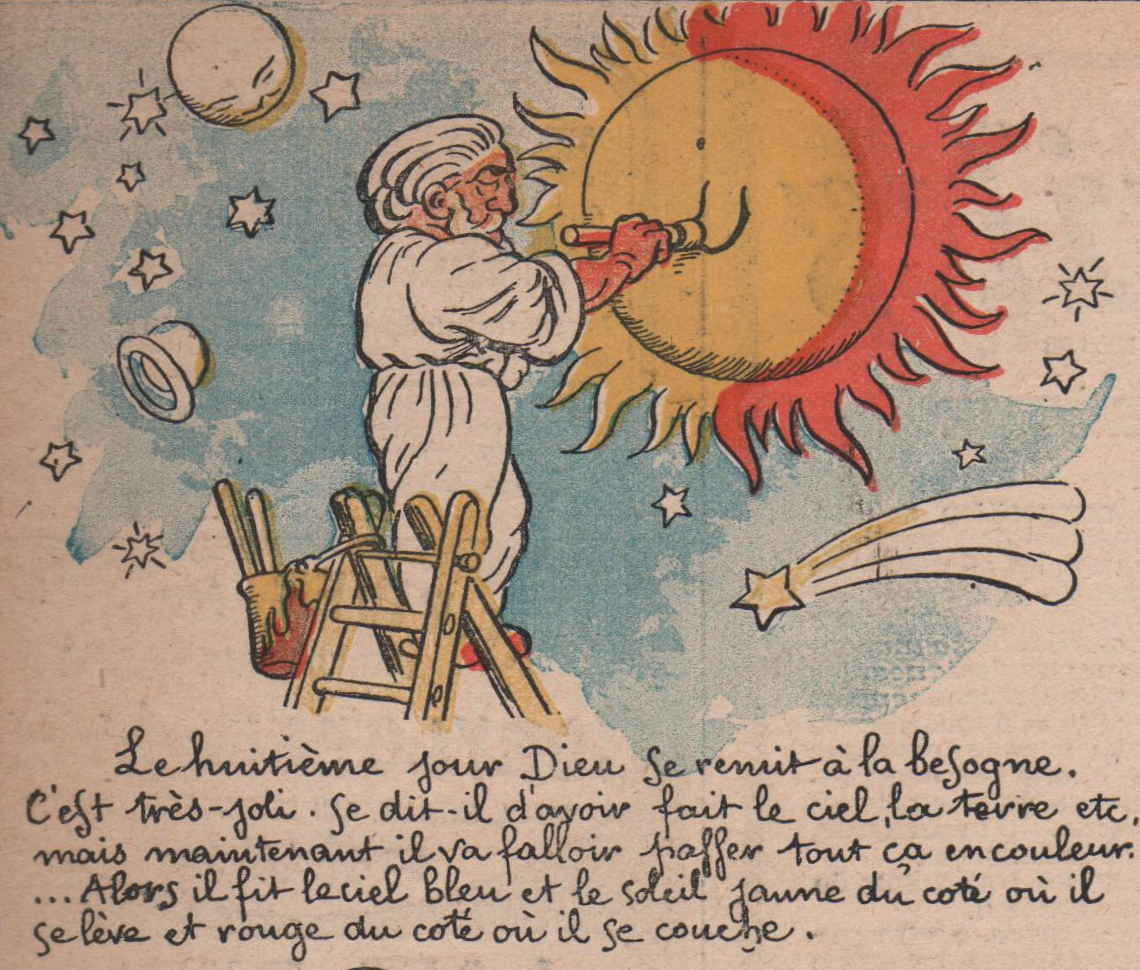 Le huitième jour Dieu se remit à la besogne.
C'est très-joli. se dit-il d'avoir fait le ciel, la terre etc,
mais maintenant il va falloir passer tout ça en couleur.
...Alors il fit le ciel bleu et le soleil jaune du coté où il
se lève et rouge du coté où il se couche.